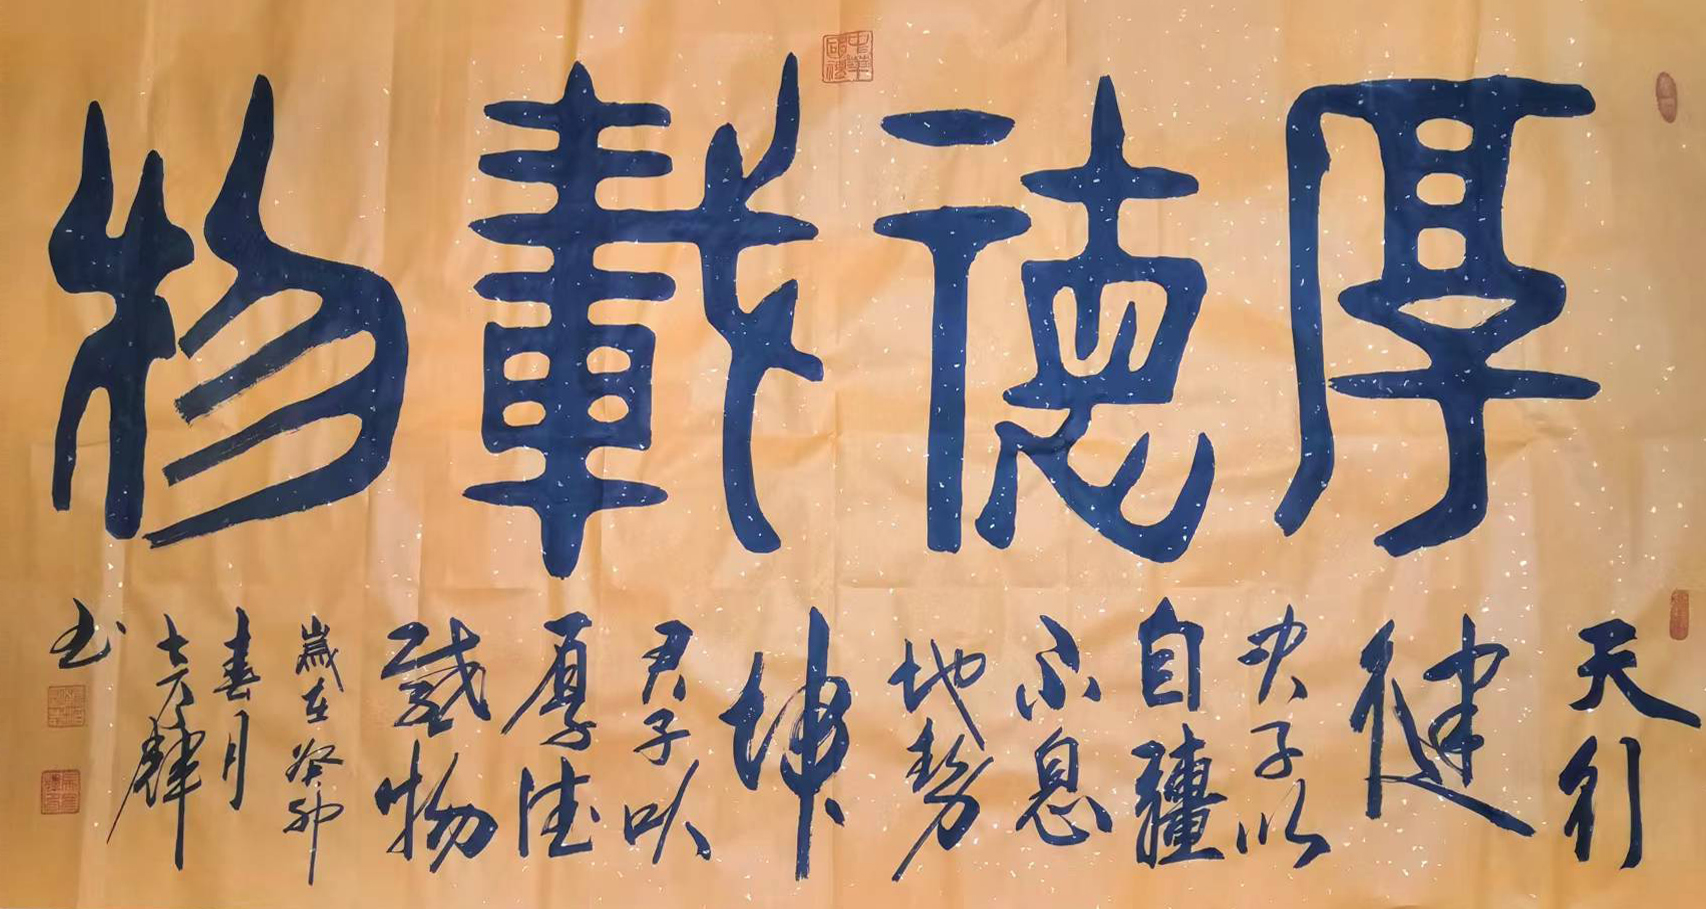 厚德載物
天行
健
君子以
自疆
不息
地勢
坤
君子以
厚德
載物
歲在癸卯
春月
书